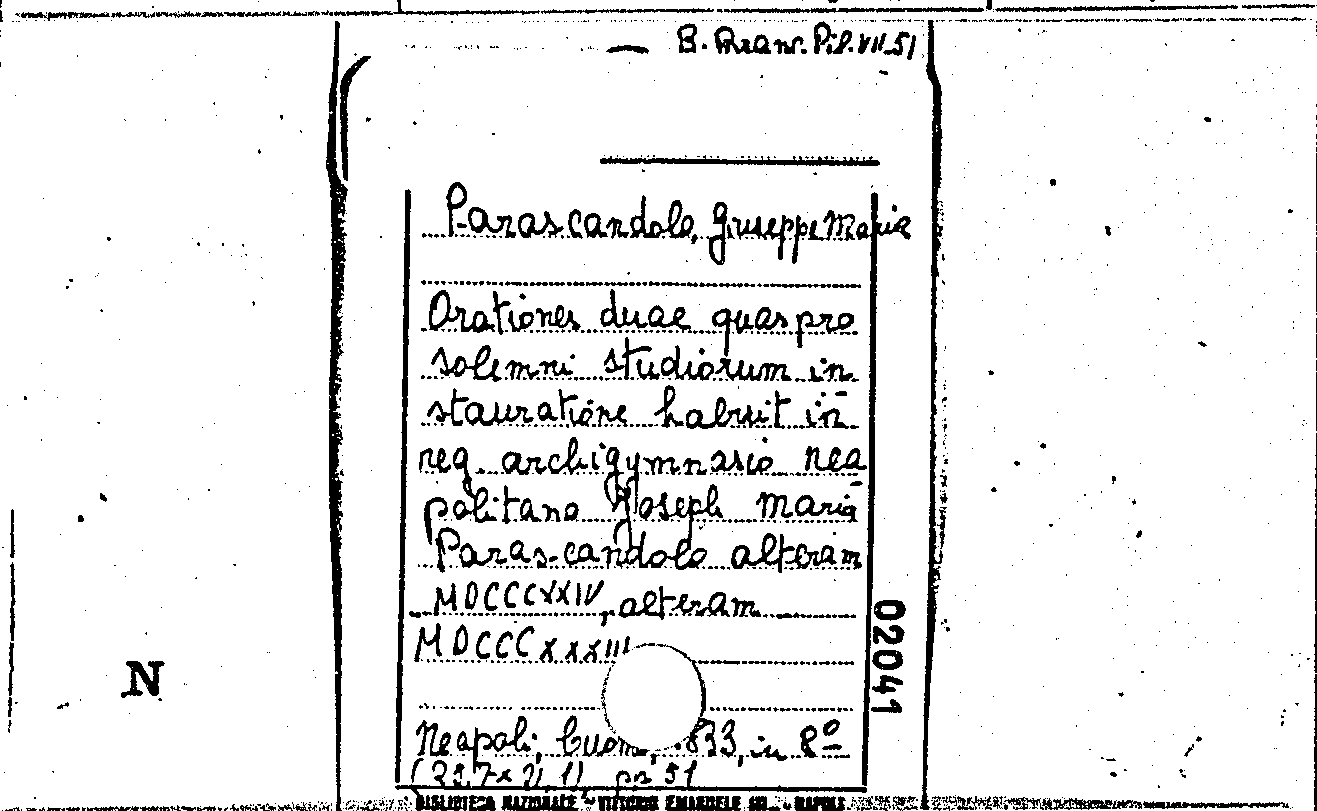 B. Branc. Pil. VII. 51
Parascandolo, Giuseppe Maria
Orationes duae quas pro
solemni studiorum in=
stauratione habuit in
reg. archigymnasio nea
politano Joseph Maria
Paras-candolo alteram
MDCCCXXIV, alteram
MDCCCXXXIII
02041
N
Neapoli, 833, in 8º
pp 51
BIBLIOTECA NAZIONALE - VITTORIO EMANUELE III - NAPOLI